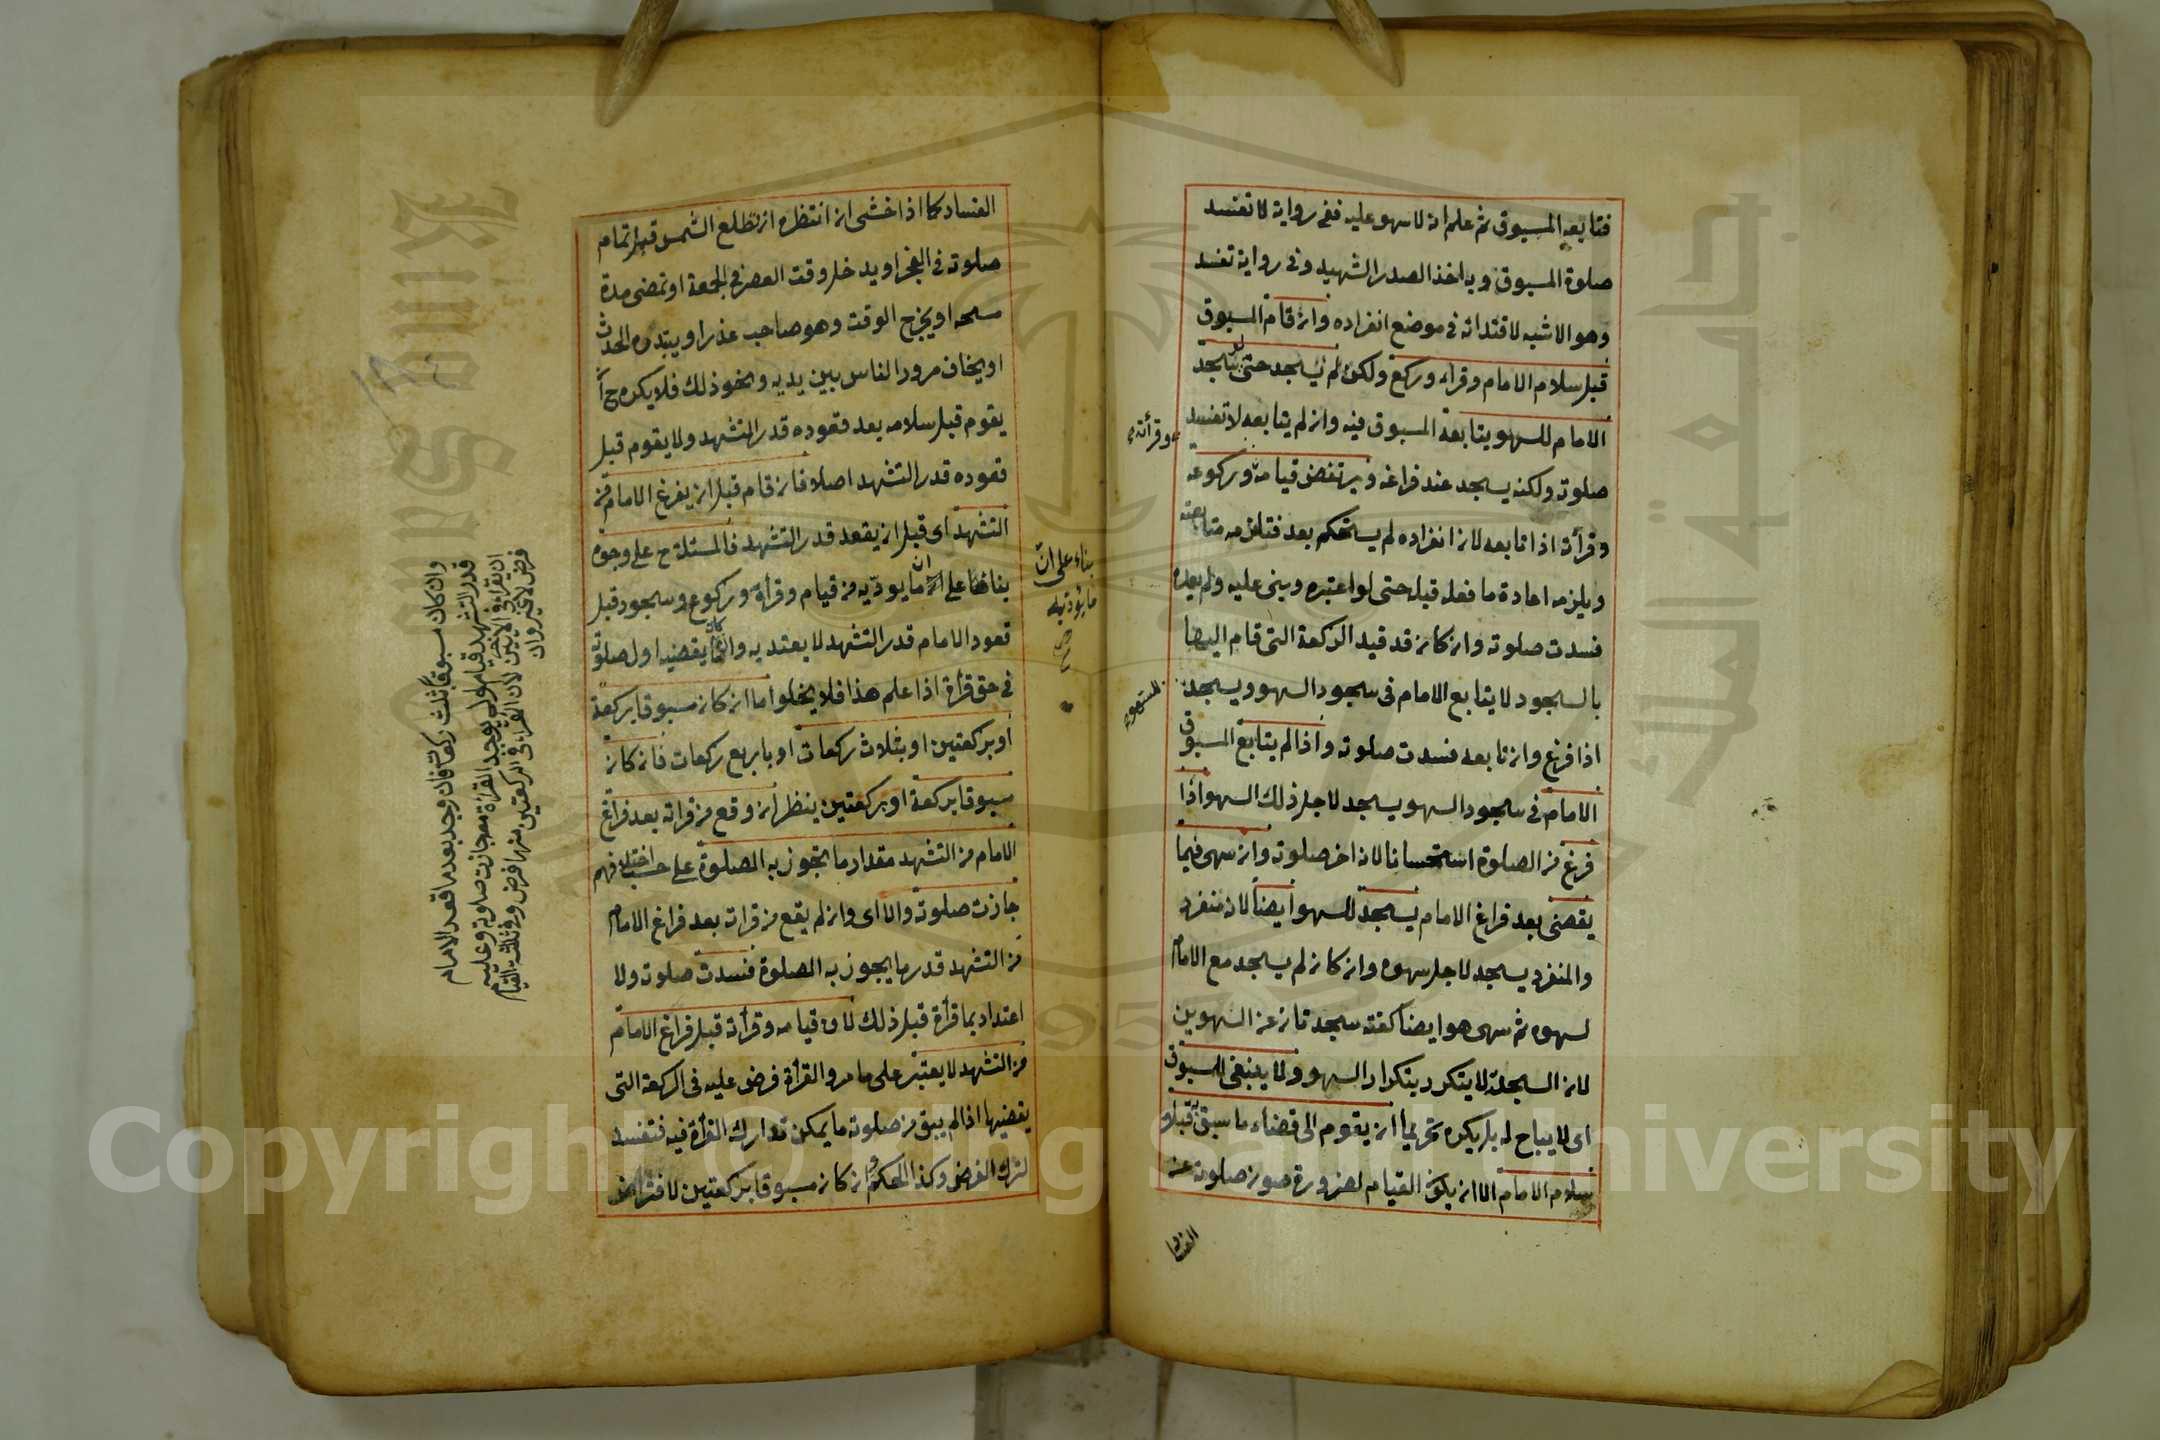 فتابعه المسبوق ثم علم انه لا سهو عليه ففى رواية لا تفسد
صلوة المسبوق وبه اخذ الصدر الشهيد وفى رواية تفسد
وهو الاشبه لاقتدائه فى موضع انفراده وان قام المسبوق
قبل سلام الامام وقرأ وركع ولكن لم يسجد حتى سجد
الامام للسهو يتابعه المسبوق فيه وان لم يتابعه لا تفسد
صلوته ولكنه يسجد عند فراغه ويرتفض قيامه وركوعه
وقرأته
وقرأته اذا تابعه لان انفراده لم يستحكم بعد فتلزمه متابعته
ويلزمه اعادة ما فعله قبله حتى لو اعتبره وبنى عليه ولم يعده
فسدت صلوته وان كان قد قيد الركعة التى قام اليها
بالسجود لا يتابع الامام فى سجود السهو ويسجد
لسهوه
اذا فرغ وان تابعه فسدت صلوته واذا لم يتابع المسبوق
الامام فى سجود السهو يسجد لاجل ذلك السهو اذا
فرغ من الصلوة استحسانا لانه اخر صلوته وان سهى فيما
يقضى بعد فراغ الامام يسجد للسهو ايضا لانه منفرد
والمنفرد يسجد لاجل سهوه وان كان لم يسجد مع الامام
لسهوه ثم سهى هو ايضا كفته سجدتان عن السهوين
لان السجدة لا يتكرر بتكرار السهو ولا ينبغى للمسبوق
اى لا يباح له بل يكره تحريما ان يقوم الى قضاء ما سبق به قبل
سلام الامام الا ان يكون القيام لضرورة صون صلوته عن
الفساد
الفساد كما اذا خشى ان انتظره ان تطلع الشمس قبل اتمام
صلوته فى الفجر او يدخل وقت العصر فى الجمعة او تمضى مدة
مسحه او يخرج الوقت وهو صاحب عذر او يبتدره الحدث
او يخاف مرور الناس بين يديه ونحو ذلك فلا يكره ح ان
يقوم قبل سلامه بعد قعوده قدر التشهد ولا يقوم قبل
قعوده قدر التشهد اصلا فان قام قبل ان يفرغ الامام من
التشهد اى قبل ان يقعد قدر التشهد فالمسئلة ح على وجوه
بناء على ان ما يؤديه من قيام وقرأة وركوع وسجود قبل
بناء على ان
ما يؤديه
صح
قعود الامام قدر التشهد لا يعتد به وان ما يقضيه اول صلوته
فى حق قرأة اذا علم هذا فلا يخلوا اما ان كان مسبوقا بركعة
او بركعتين او بثلاث ركعات او باربع ركعات فان كان
مسبوقا بركعة او بركعتين ينظر ان وقع من قراته بعد فراغ
الامام من التشهد مقدار ما يجوز به الصلوة على حسب اختلافهم
جازت صلوته والا اى وان لم يقع من قراته بعد فراغ الامام
من التشهد قدر ما يجوز به الصلوة فسدت صلوته ولا
اعتداد بما قرأة قبل ذلك لان قيامه وقرأته قبل فراغ الامام
من التشهد لا يعتبر على ما مر والقرأة فرض عليه فى الركعة التى
يقضيها اذا لم يبق من صلوته ما يمكن تدارك القرأة فيه فتفسد
لترك الفرض وكذا الحكم وان كان مسبوقا بركعتين لافتراض
وان كان مسبوقا بثلث ركعات فان وجد بعد ما قعد الامام
قدر التشهد قيام ولم يوجد القرأة معه جازت صلوته وعليه
ان يقرا فى الاخيرين لان القرأة فى الركعتين منها فرض
فرض
Copyright © King Saud University
جامعة الملك سعود
King Saud
1957